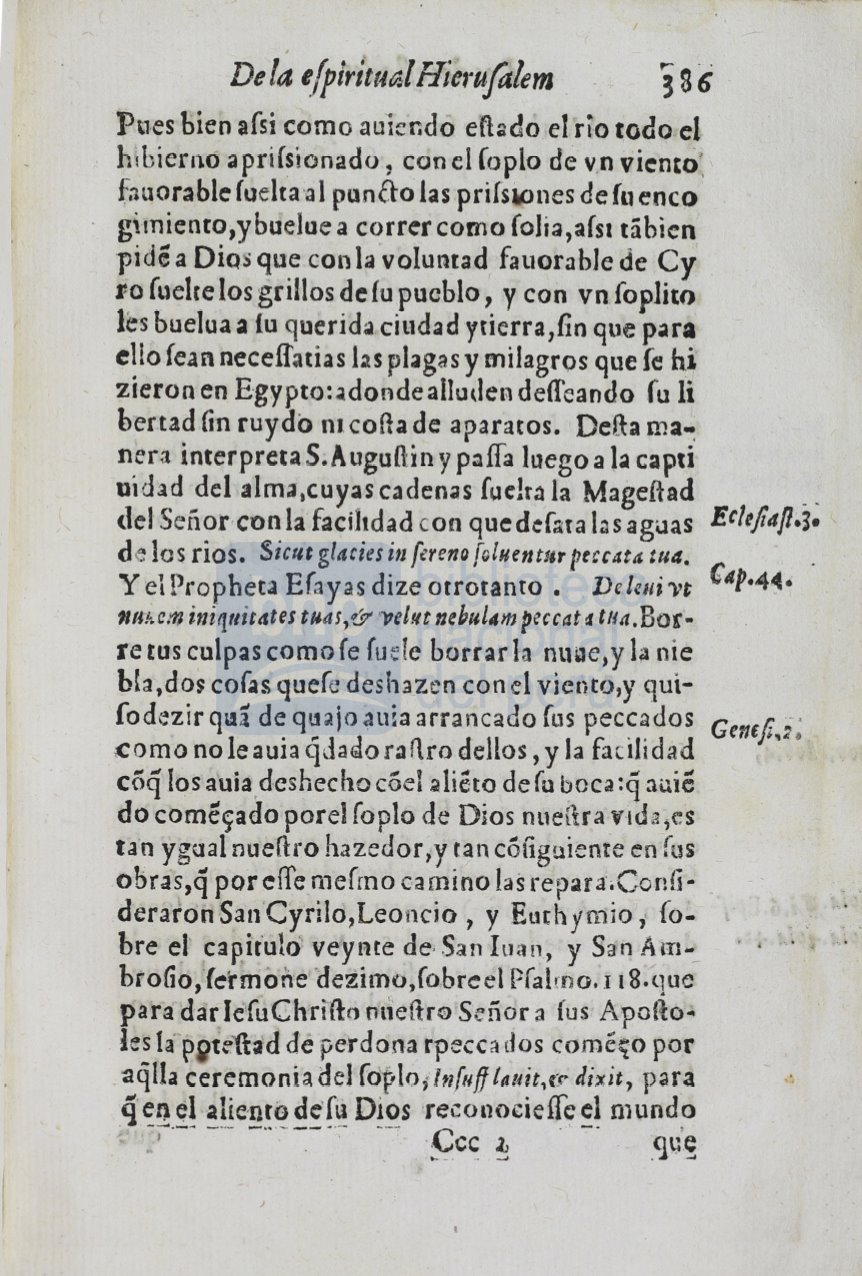 De la eſpiritual Hieruſalem 386
Pues bien aſsi como auiendo eſtado el rio todo el
hibierno apriſsionado, con el ſoplo de vn viento
fauorable ſuelta al puncto las priſsiones de ſu enco
gimiento, y buelue a correr como ſolia, aſsi tãbien
pidẽ a Dios que con la voluntad fauorable de Cy
ro ſuelte los grillos de ſu pueblo, y con vn ſoplito
les buelua a ſu querida ciudad y tierra, ſin que para
ello ſean neceſſatias las plagas y milagros que ſe hi
zieron en Egypto: adonde alluden deſſeando ſu li
bertad ſin ruydo ni coſta de aparatos. Deſta ma-
nera interpreta S. Auguſtin y paſſa luego a la capti
uidad del alma, cuyas cadenas ſuelta la Mageſtad
del Señor con la facilidad con que deſata las aguas
de los rios. Sicut glacies in ſereno ſoluentur peccata tua.
Ecleſiaſt.3.
Y el Propheta Eſayas dize otro tanto. Deleui vt
Cap.44.
nubem iniquitates tuas, & velut nebulam peccata tua. Bor-
re tus culpas como ſe ſuele borrar la nuue, y la nie
bla, dos coſas que ſe deshazen con el viento, y qui-
ſo dezir quã de quajo auia arrancado ſus peccados
Geneſi.2.
como no le auia q̃dado raſtro dellos, y la facilidad
cõq̃ los auia deshecho cõ el aliẽto de ſu boca: q̃ auiẽ
do comẽçado por el ſoplo de Dios nueſtra vida, es
tan ygual nueſtro hazedor, y tan cõſiguiente en ſus
obras, q̃ por eſſe meſmo camino las repara. Conſi-
deraron San Cyrilo, Leoncio, y Euthymio, ſo-
bre el capitulo veynte de San Iuan, y San Am-
broſio, ſermone dezimo, ſobre el Pſalmo. 118. que
para dar Ieſu Chriſto nueſtro Señor a ſus Apoſto-
les la poteſtad de perdona rpeccados comẽço por
aq̃lla ceremonia del ſoplo, Inſufflauit, & dixit, para
q̃ en el aliento de ſu Dios reconocieſſe el mundo
Ccc 2 que